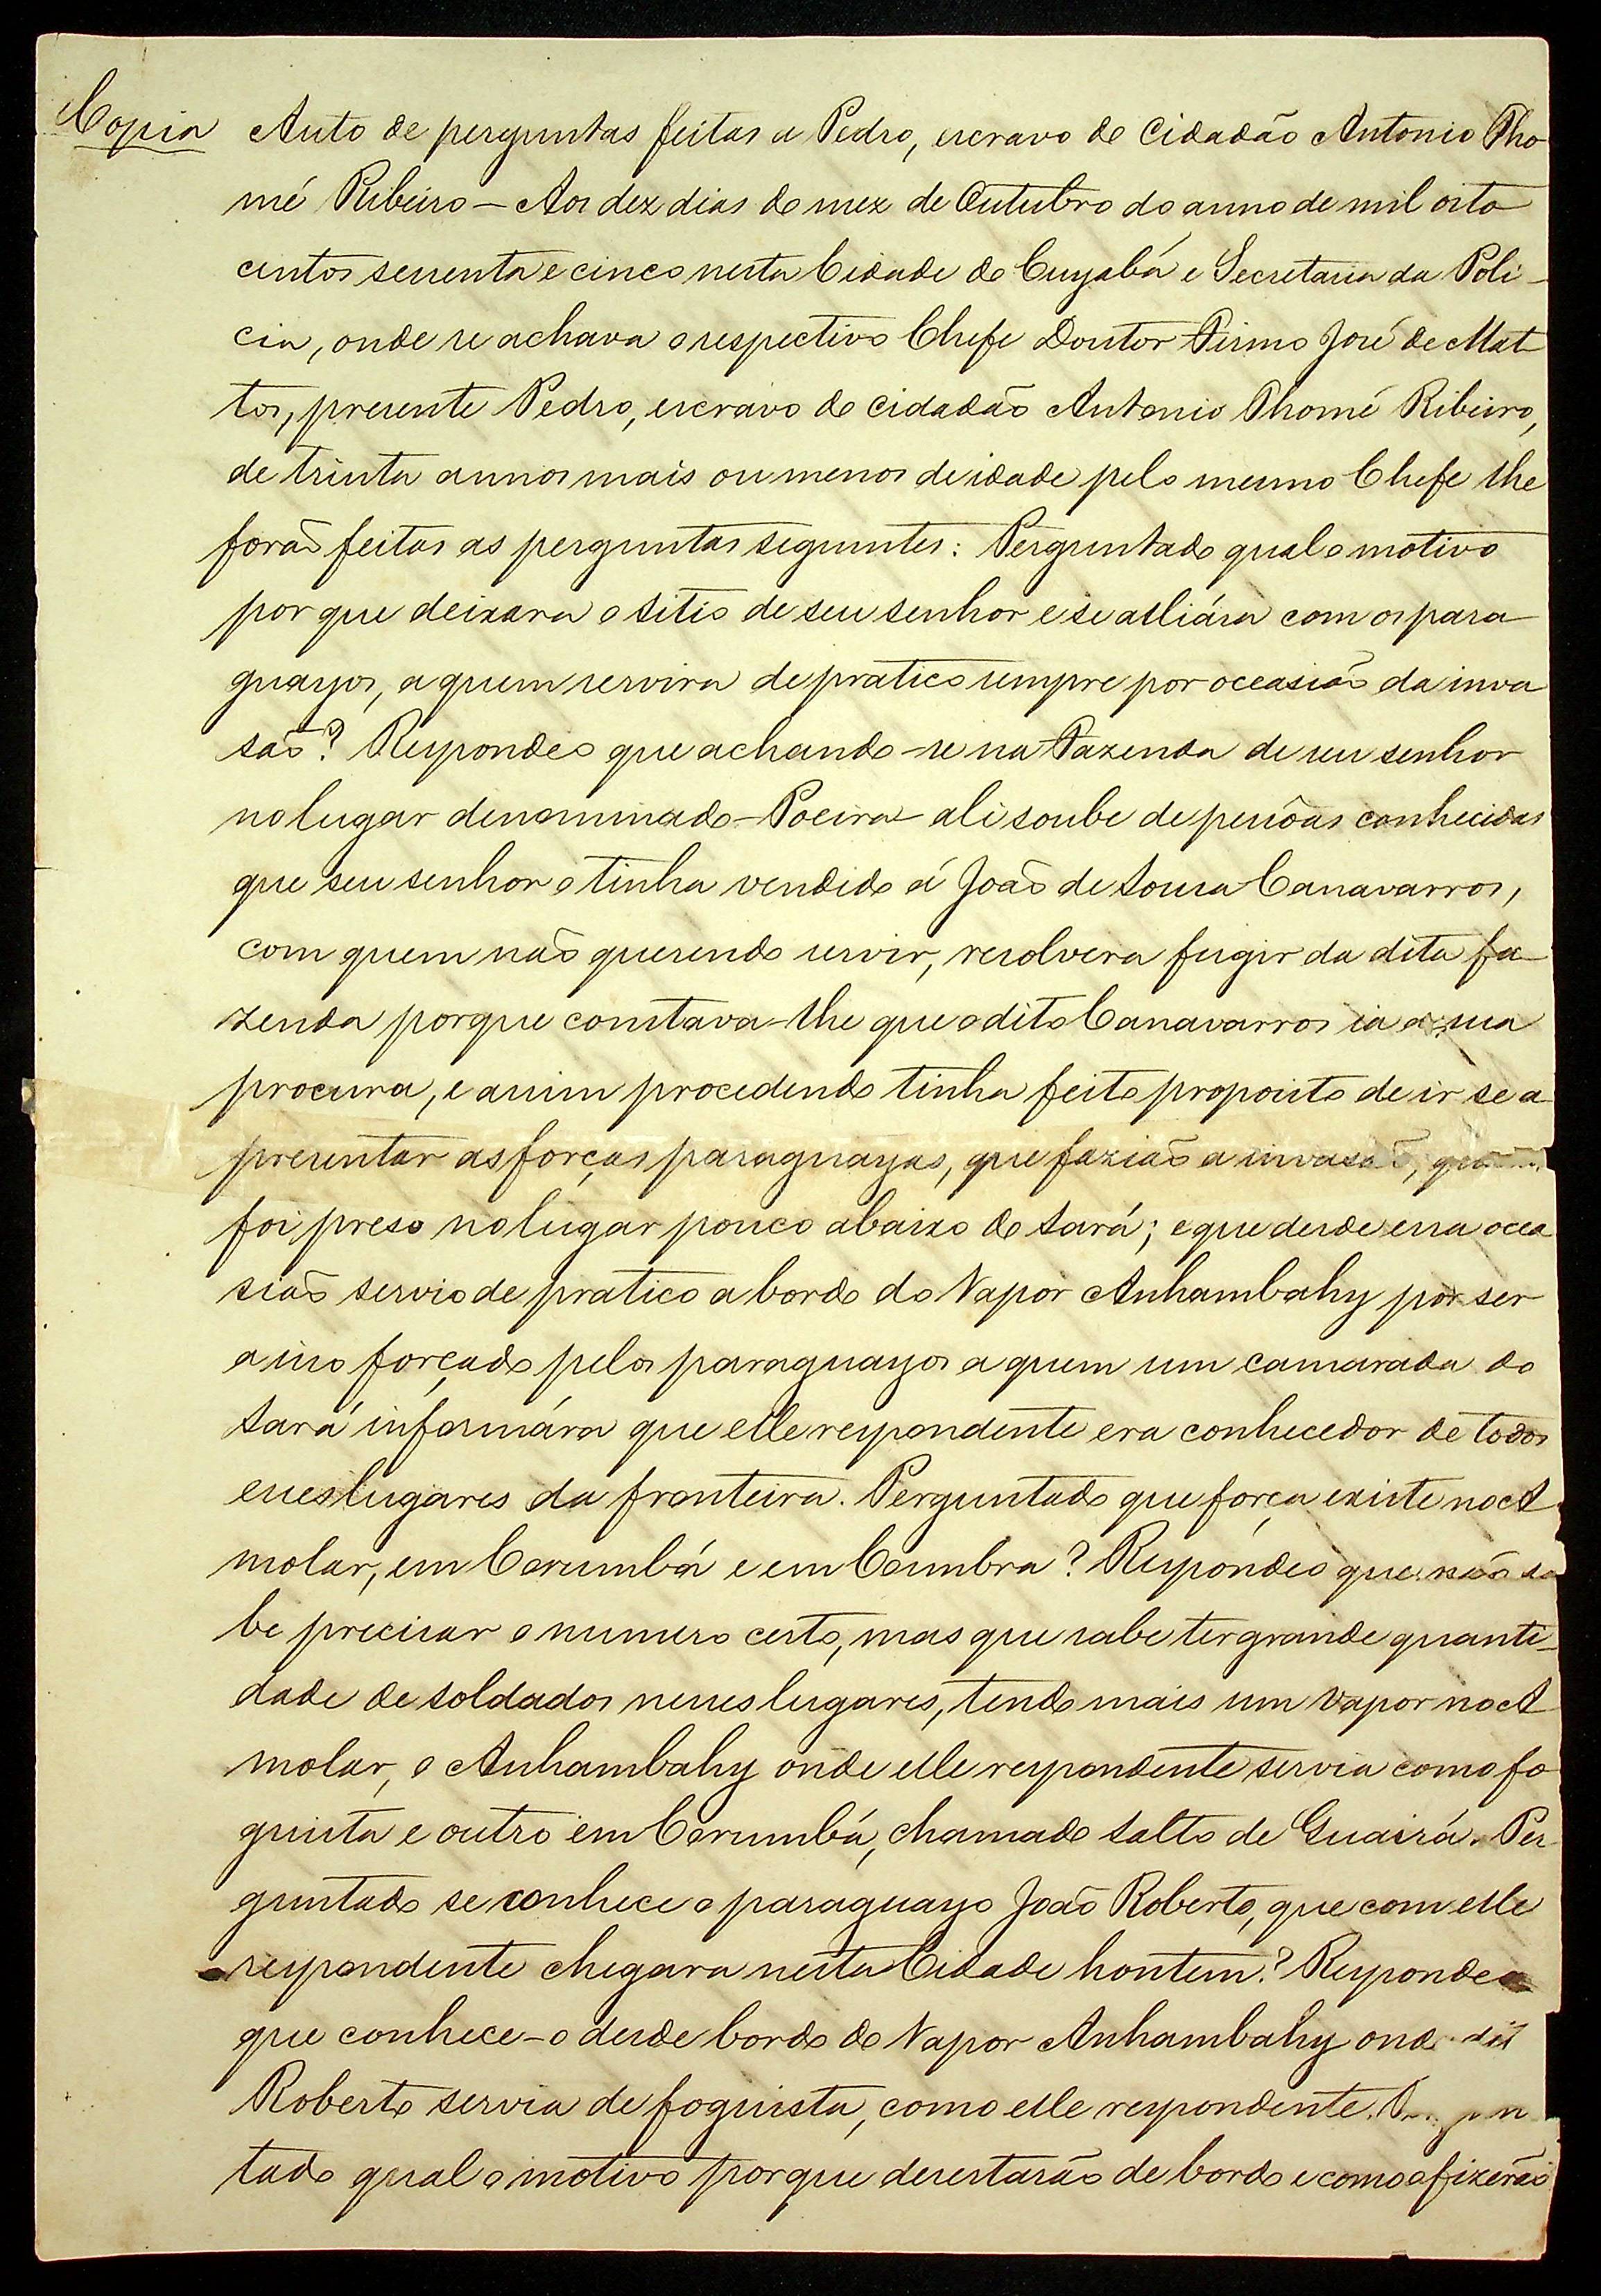 Copia Auto de perguntas feitas a Pedro, escravo do Cidadão Antonio Tho
mé Ribeiro – Aos dez dias do mez de Outubro do anno de mil oito
centos sessenta e cinco nesta Cidade do Cuyabá e Secretaria da Poli-
cia, onde se achava o respectivo Chefe Doutor Firmo José de Mat
tos, presente Pedro, escravo do cidadão Antonio Thomé Ribeiro,
de trinta annos mais ou menos de idade pelo mesmo Chefe lhe
forão feitas as perguntas seguintes: Perguntado qual o motivo
por que deixara o sitio de seu senhor e se alliára com os para
guayos, a quem servira de pratico sempre por occasião da inva
são? Respondeo que achando-se na Fazenda de seu senhor
no lugar denominado – Poeira – ali soube de pessôas conhecidas
que seu senhor o tinha vendido á João de Sousa Canavarros,
com quem não querendo servir, resolvera fugir da dita fa-
zenda porque constava-lhe que o dito Canavarros ia a sua
procura, e assim procedendo tinha feito proposito de ir se a
presentar as forças paraguayas, que fazião a invasão,
foi preso no lugar pouco abaixo do Sará; e que desde essa occa
sião servio de pratico a bordo do Vapor Anhambahy por ser
a isso forçado pelos paraguayos a quem um camarada do
Sará informára que elle respondente era conhecedor de todos
esses lugares da fronteira. Perguntado que força existe no A
molar, em Corumbá e em Coimbra? Respondeo que não sa
be precisar o numero certo, mas que sabe ter grande quanti-
dade de soldados nesses lugares, tendo mais um vapor no A
molar, o Anhambahy onde elle respondente servia como fo
guista e outro em Corumbá, chamado Salto de Guairá. Per
guntado se conhece o paraguayo João Roberto, que com elle
respondente chegara nesta Cidade hontem? Respondeo
que conhece-o desde bordo do Vapor Anhambahy onde dito
Roberto servia de foguista, como elle respondente. Pergun
tado qual o motivo porque desertarão de bordo e como o fizerão